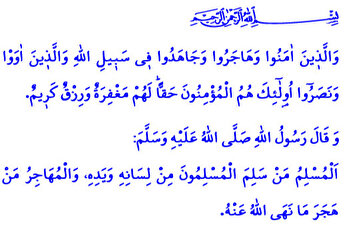 بِسْمِ اللهِ الرَّحْمٰنِ الرَّحِيمِ
وَالَّذِينَ اٰمَنُوا وَهَاجَرُوا وَجَاهَدُوا فِي سَبِيلِ اللهِ وَالَّذِينَ اٰوَوْا
وَنَصَرُٓوا اُو۬لٰٓئِكَ هُمُ الْمُؤْمِنُونَ حَقًّاۜ لَهُمْ مَغْفِرَةٌ وَرِزْقٌ كَرِيمٌ.
وَ قَالَ رَسُولُ اللهِ صَلَّى اللهُ عَلَيْهِ وَسَلَّمَ:
اَلْمُسْلِمُ مَنْ سَلِمَ الْمُسْلِمُونَ مِنْ لِسَانِهِ وَيَدِهِ، وَالْمُهَاجِرُ مَنْ
هَجَرَ مَا نَهَى اللهُ عَنْهُ.